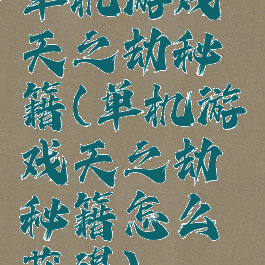 单机游戏
天之劫秘
籍(单机游
戏天之劫
秘籍怎么